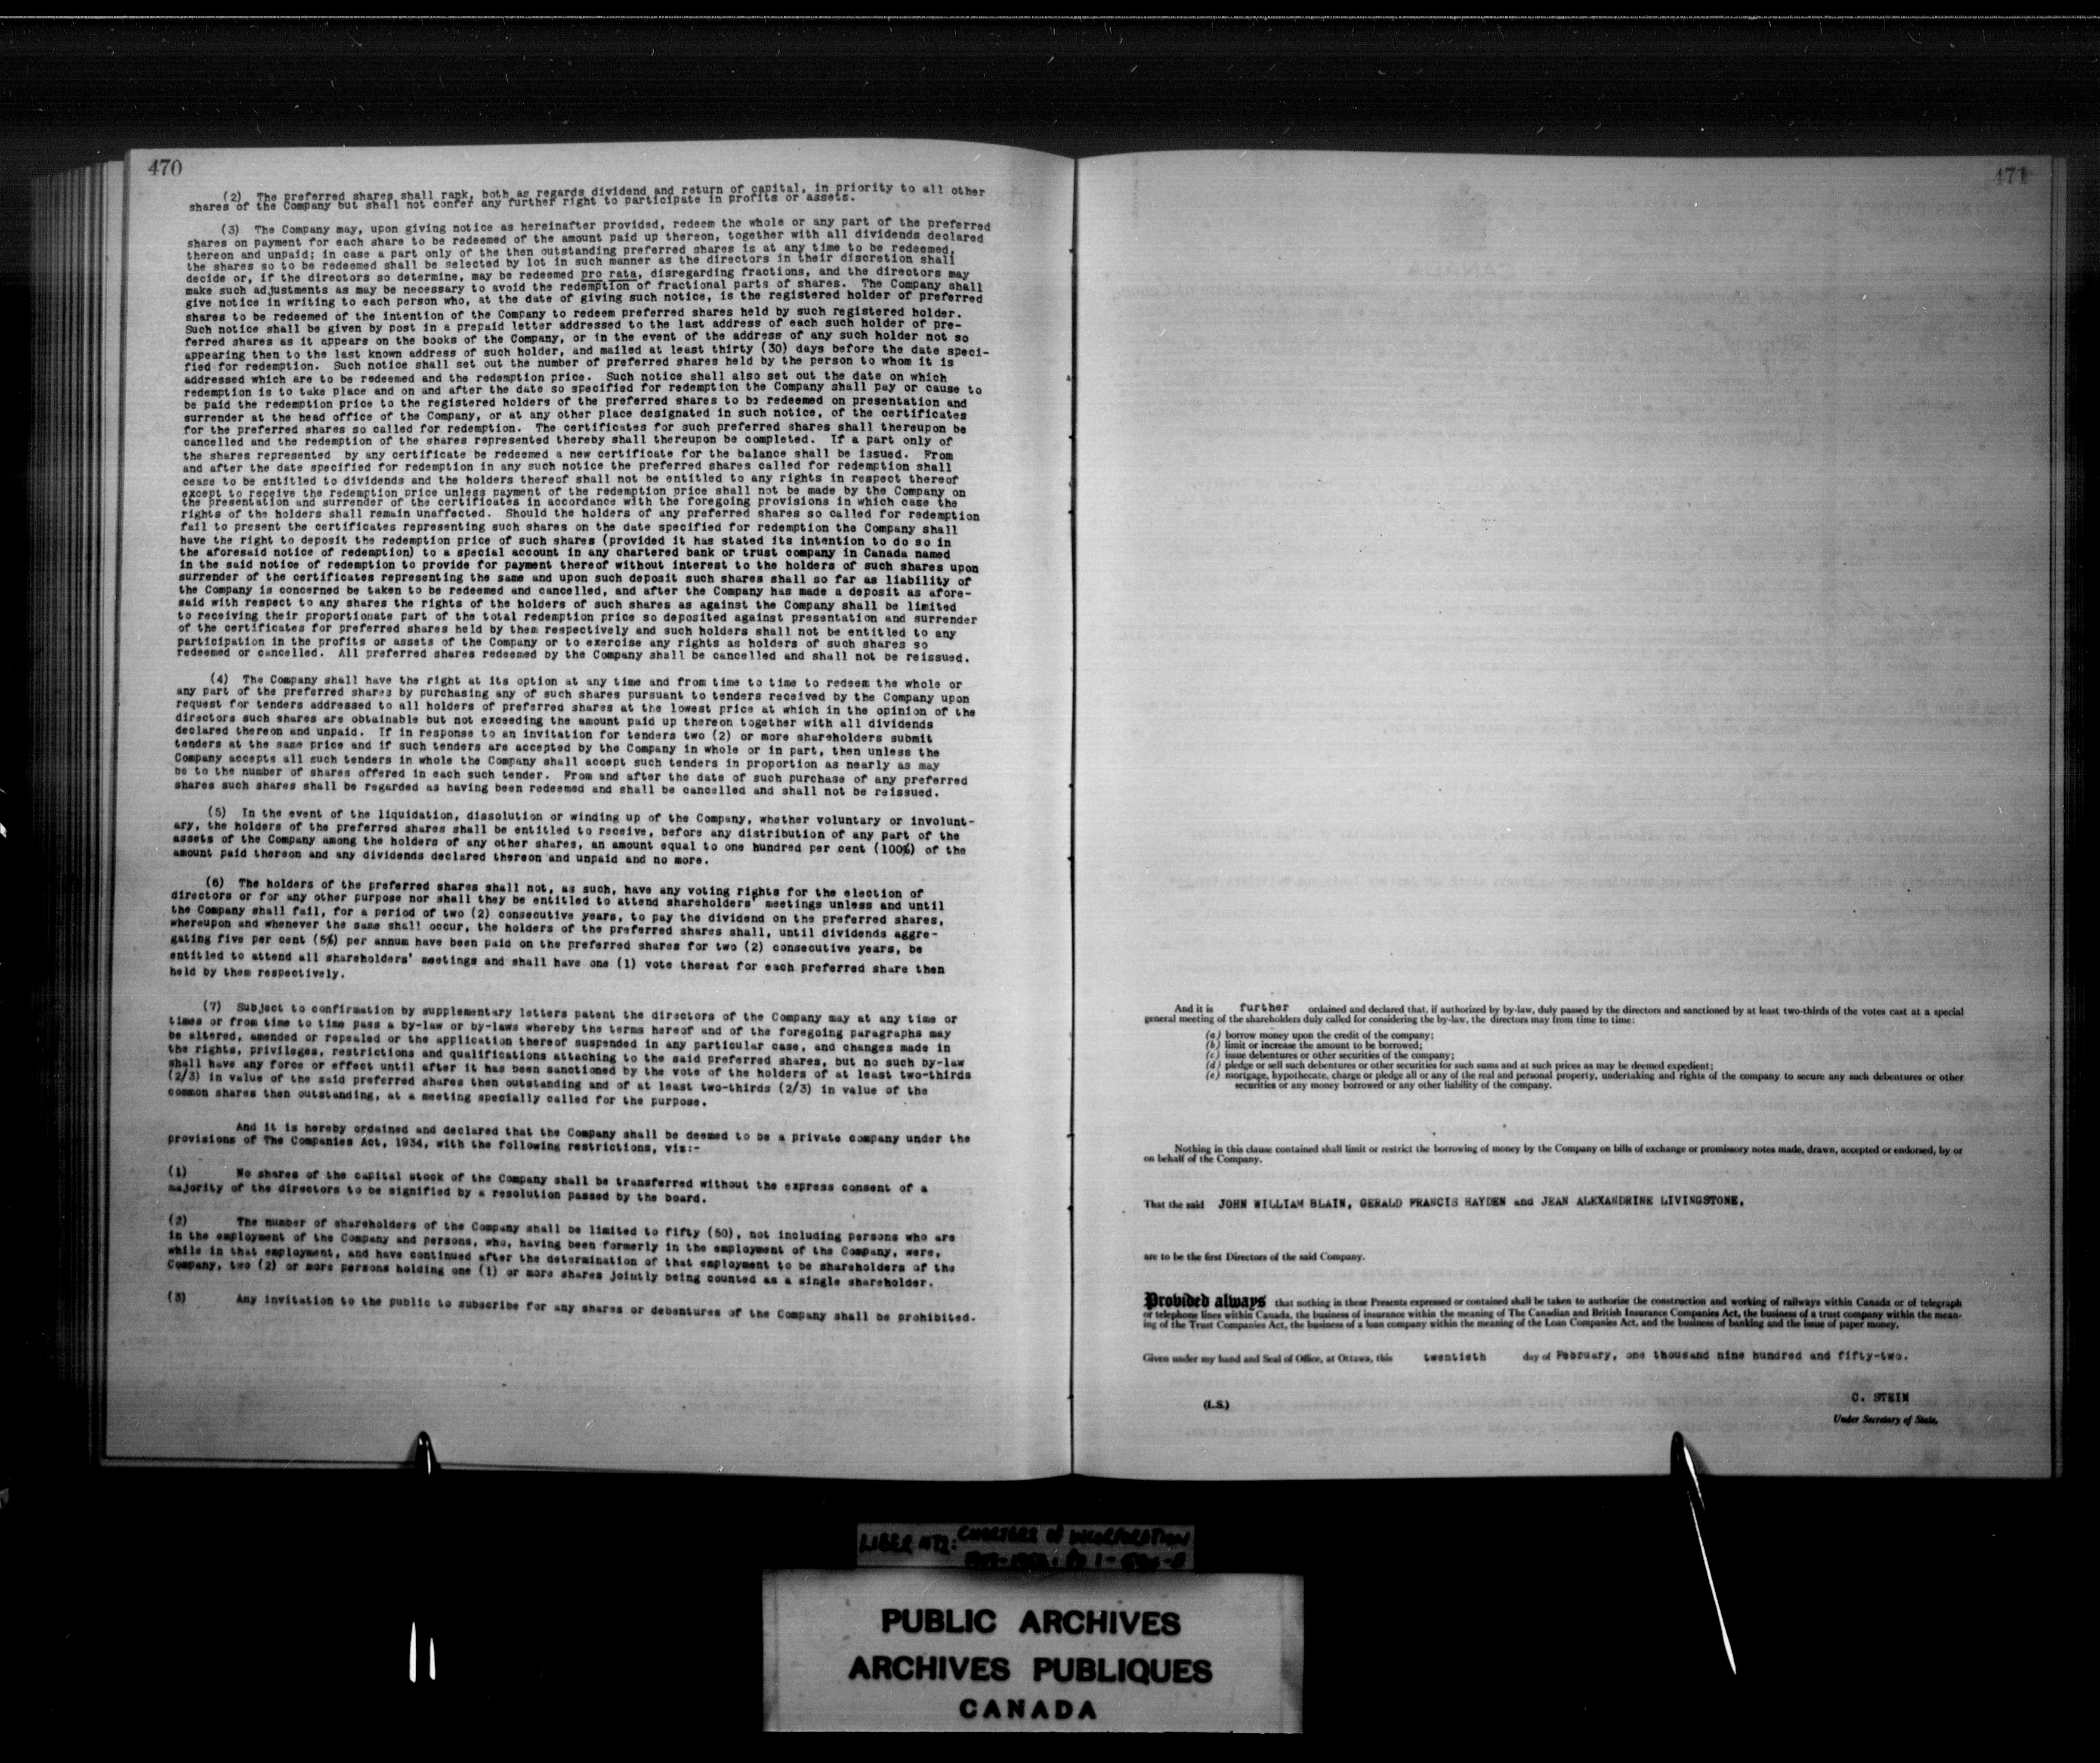 470
(2) The preferred shares shall rank, both as regards dividend and return of capital, in priority to all other
shares of the Company but shall not confer any further right to participate in profits or assets.
(3) The Company may, upon giving notice as hereinafter provided, redeem the whole or any part of the preferred
shares on payment for each share to be redeemed of the amount paid up thereon, together with all dividends declared
thereon and unpaid; in case a part only of the then outstanding preferred shares is at any time to be redeemed,
the shares so to be redeemed shall be selected by lot in such manner as the directors in their discretion shall
decide or, if the directors so determine, may be redeemed pro rata, disregarding fractions, and the directors may
make such adjustments as may be necessary to avoid the redemption of fractional parts of shares. The Company shall
give notice in writing to each person who, at the date of giving such notice, is the registered holder of preferred
shares to be redeemed of the intention of the Company to redeem preferred shares held by such registered holder.
Such notice shall be given by post in a prepaid letter addressed to the last address of each such holder of pre-
ferred shares as it appears on the books of the Company, or in the event of the address of any such holder not so
appearing then to the last known address of such holder, and mailed at least thirty (30) days before the date speci-
fied for redemption. Such notice shall set out the number of preferred shares held by the person to whom it is
addressed which are to be redeemed and the redemption price. Such notice shall also set out the date on which
redemption is to take place and on and after the date so specified for redemption the Company shall pay or cause to
be paid the redemption price to the registered holders of the preferred shares to be redeemed on presentation and
surrender at the head office of the Company, or at any other place designated in such notice, of the certificates
for the preferred shares so called for redemption. The certificates for such preferred shares shall thereupon be
cancelled and the redemption of the shares represented thereby shall thereupon be completed. If a part only of
the shares represented by any certificate be redeemed a new certificate for the balance shall be issued. From
and after the date specified for redemption in any such notice the preferred shares called for redemption shall
cease to be entitled to dividends and the holders thereof shall not be entitled to any rights in respect thereof
except to receive the redemption price unless payment of the redemption price shall not be made by the Company on
the presentation and surrender of the certificates in accordance with the foregoing provisions in which case the
rights of the holders shall remain unaffected. Should the holders of any preferred shares so called for redemption
fail to present the certificates representing such shares on the date specified for redemption the Company shall
have the right to deposit the redemption price of such shares (provided it has stated its intention to do so in
the aforesaid notice of redemption) to a special account in any chartered bank or trust company in Canada named
in the said notice of redemption to provide for payment thereof without interest to the holders of such shares upon
surrender of the certificates representing the same and upon such deposit such shares shall so far as liability of
the Company is concerned be taken to be redeemed and cancelled, and after the Company has made a deposit as afore-
said with respect to any shares the rights of the holders of such shares as against the Company shall be limited
to receiving their proportionate part of the total redemption price so deposited against presentation and surrender
of the certificates for preferred shares held by them respectively and such holders shall not be entitled to any
participation in the profits or assets of the Company or to exercise any rights as holders of such shares so
redeemed or cancelled. All preferred shares redeemed by the Company shall be cancelled and shall not be reissued.
(4) The Company shall have the right at its option at any time and from time to time to redeem the whole or
any part of the preferred shares by purchasing any of such shares pursuant to tenders received by the Company upon
request for tenders addressed to all holders of preferred shares at the lowest price at which in the opinion of the
directors such shares are obtainable but not exceeding the amount paid up thereon together with all dividends
declared thereon and unpaid. If in response to an invitation for tenders two (2) or more shareholders submit
tenders at the same price and if such tenders are accepted by the Company in whole or in part, then unless the
Company accepts all such tenders in whole the Company shall accept such tenders in proportion as nearly as may
be to the number of shares offered in each such tender. From and after the date of such purchase of any preferred
shares such shares shall be regarded as having been redeemed and shall be cancelled and shall not be reissued.
(5) In the event of the liquidation, dissolution or winding up of the Company, whether voluntary or involunt-
ary, the holders of the preferred shares shall be entitled to receive, before any distribution of any part of the
assets of the Company among the holders of any other shares, an amount equal to one hundred per cent (100%) of the
amount paid thereon and any dividends declared thereon and unpaid and no more.
(6) The holders of the preferred shares shall not, as such, have any voting rights for the election of
directors or for any other purpose nor shall they be entitled to attend shareholders' meetings unless and until
the Company shall fail, for a period of two (2) consecutive years, to pay the dividend on the preferred shares,
whereupon and whenever the same shall occur, the holders of the preferred shares shall, until dividends aggre-
gating five per cent (5%) per annum have been paid on the preferred shares for two (2) consecutive years, be
entitled to attend all shareholders' meetings and shall have one (1) vote thereat for each preferred share then
held by them respectively.
(7) Subject to confirmation by supplementary letters patent the directors of the Company may at any time or
times or from time to time pass a by-law or by-laws whereby the terms hereof and of the foregoing paragraphs may
be altered, amended or repealed or the application thereof suspended in any particular case, and changes made in
the rights, privileges, restrictions and qualifications attaching to the said preferred shares, but no such by-law
shall have any force or effect until after it has been sanctioned by the vote of the holders of at least two-thirds
(2/3) in value of the said preferred shares then outstanding and of at least two-thirds (2/3) in value of the
common shares then outstanding, at a meeting specially called for the purpose.
And it is hereby ordained and declared that the Company shall be deemed to be a private company under the
provisions of The Companies Act, 1934, with the following restrictions, viz:-
(1) No shares of the capital stock of the Company shall be transferred without the express consent of a
majority of the directors to be signified by a resolution passed by the board.
(2) The number of shareholders of the Company shall be limited to fifty (50), not including persons who are
in the employment of the Company and persons, who, having been formerly in the employment of the Company, were,
while in that employment, and have continued after the determination of that employment to be shareholders of the
Company, two (2) or more persons holding one (1) or more shares jointly being counted as a single shareholder.
(3) Any invitation to the public to subscribe for any shares or debentures of the Company shall be prohibited.
471
And it is further ordained and declared that, if authorized by by-law, duly passed by the directors and sanctioned by at least two-thirds of the votes cast at a special
general meeting of the shareholders duly called for considering the by-law, the directors may from time to time:
(a) borrow money upon the credit of the company;
(b) limit or increase the amount to be borrowed;
(c) issue debentures or other securities of the company;
(d) pledge or sell such debentures or other securities for such sums and at such prices as may be deemed expedient;
(e) mortgage, hypothecate, charge or pledge all or any of the real and personal property, undertaking and rights of the company to secure any such debentures or other
securities or any money borrowed or any other liability of the company.
Nothing in this clause contained shall limit or restrict the borrowing of money by the Company on bills of exchange or promissory notes made, drawn, accepted or endorsed, by or
on behalf of the Company.
That the said JOHN WILLIAM BLAIN, GERALD FRANCIS HAYDEN and JEAN ALEXANDRINE LIVINGSTONE,
are to be the first Directors of the said Company.
Provided always that nothing in these Presents expressed or contained shall be taken to authorize the construction and working of railways within Canada or of telegraph
or telephone lines within Canada, the business of insurance within the meaning of The Canadian and British Insurance Companies Act, the business of a trust company within the mean-
ing of the Trust Companies Act, the business of a loan company within the meaning of the Loan Companies Act, and the business of banking and the issue of paper money.
Given under my hand and Seal of Office, at Ottawa, this twentieth day of February, one thousand nine hundred and fifty-two.
(L.S.)
C. STEIN
Under Secretary of State.
LIBER 472: CHARTERS OF INCORPORATION
PUBLIC ARCHIVES
ARCHIVES PUBLIQUES
CANADA